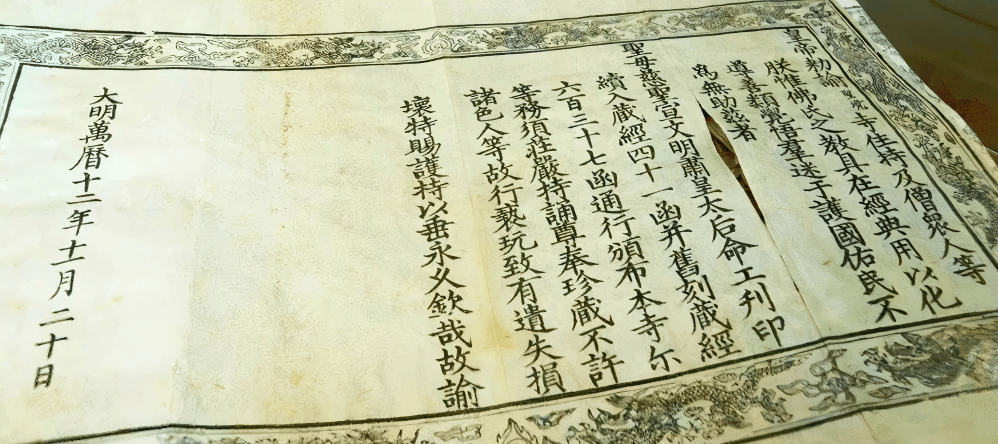 皇帝勑諭寺住持及僧眾人等
朕惟佛氏之教具在經典用以化
導善類覺悟羣迷于護國佑民不
為無助茲者
聖母慈聖宣文明肅皇太后命工刊印
續入藏經四十一函并舊刻藏經
六百三十七函通行頒布本寺尓
等務須莊嚴持誦尊奉珍藏不許
諸色人等故行褻玩致有遺失損
壞特賜護持以垂永久欽哉故諭
大明萬曆十二年十一月二十日